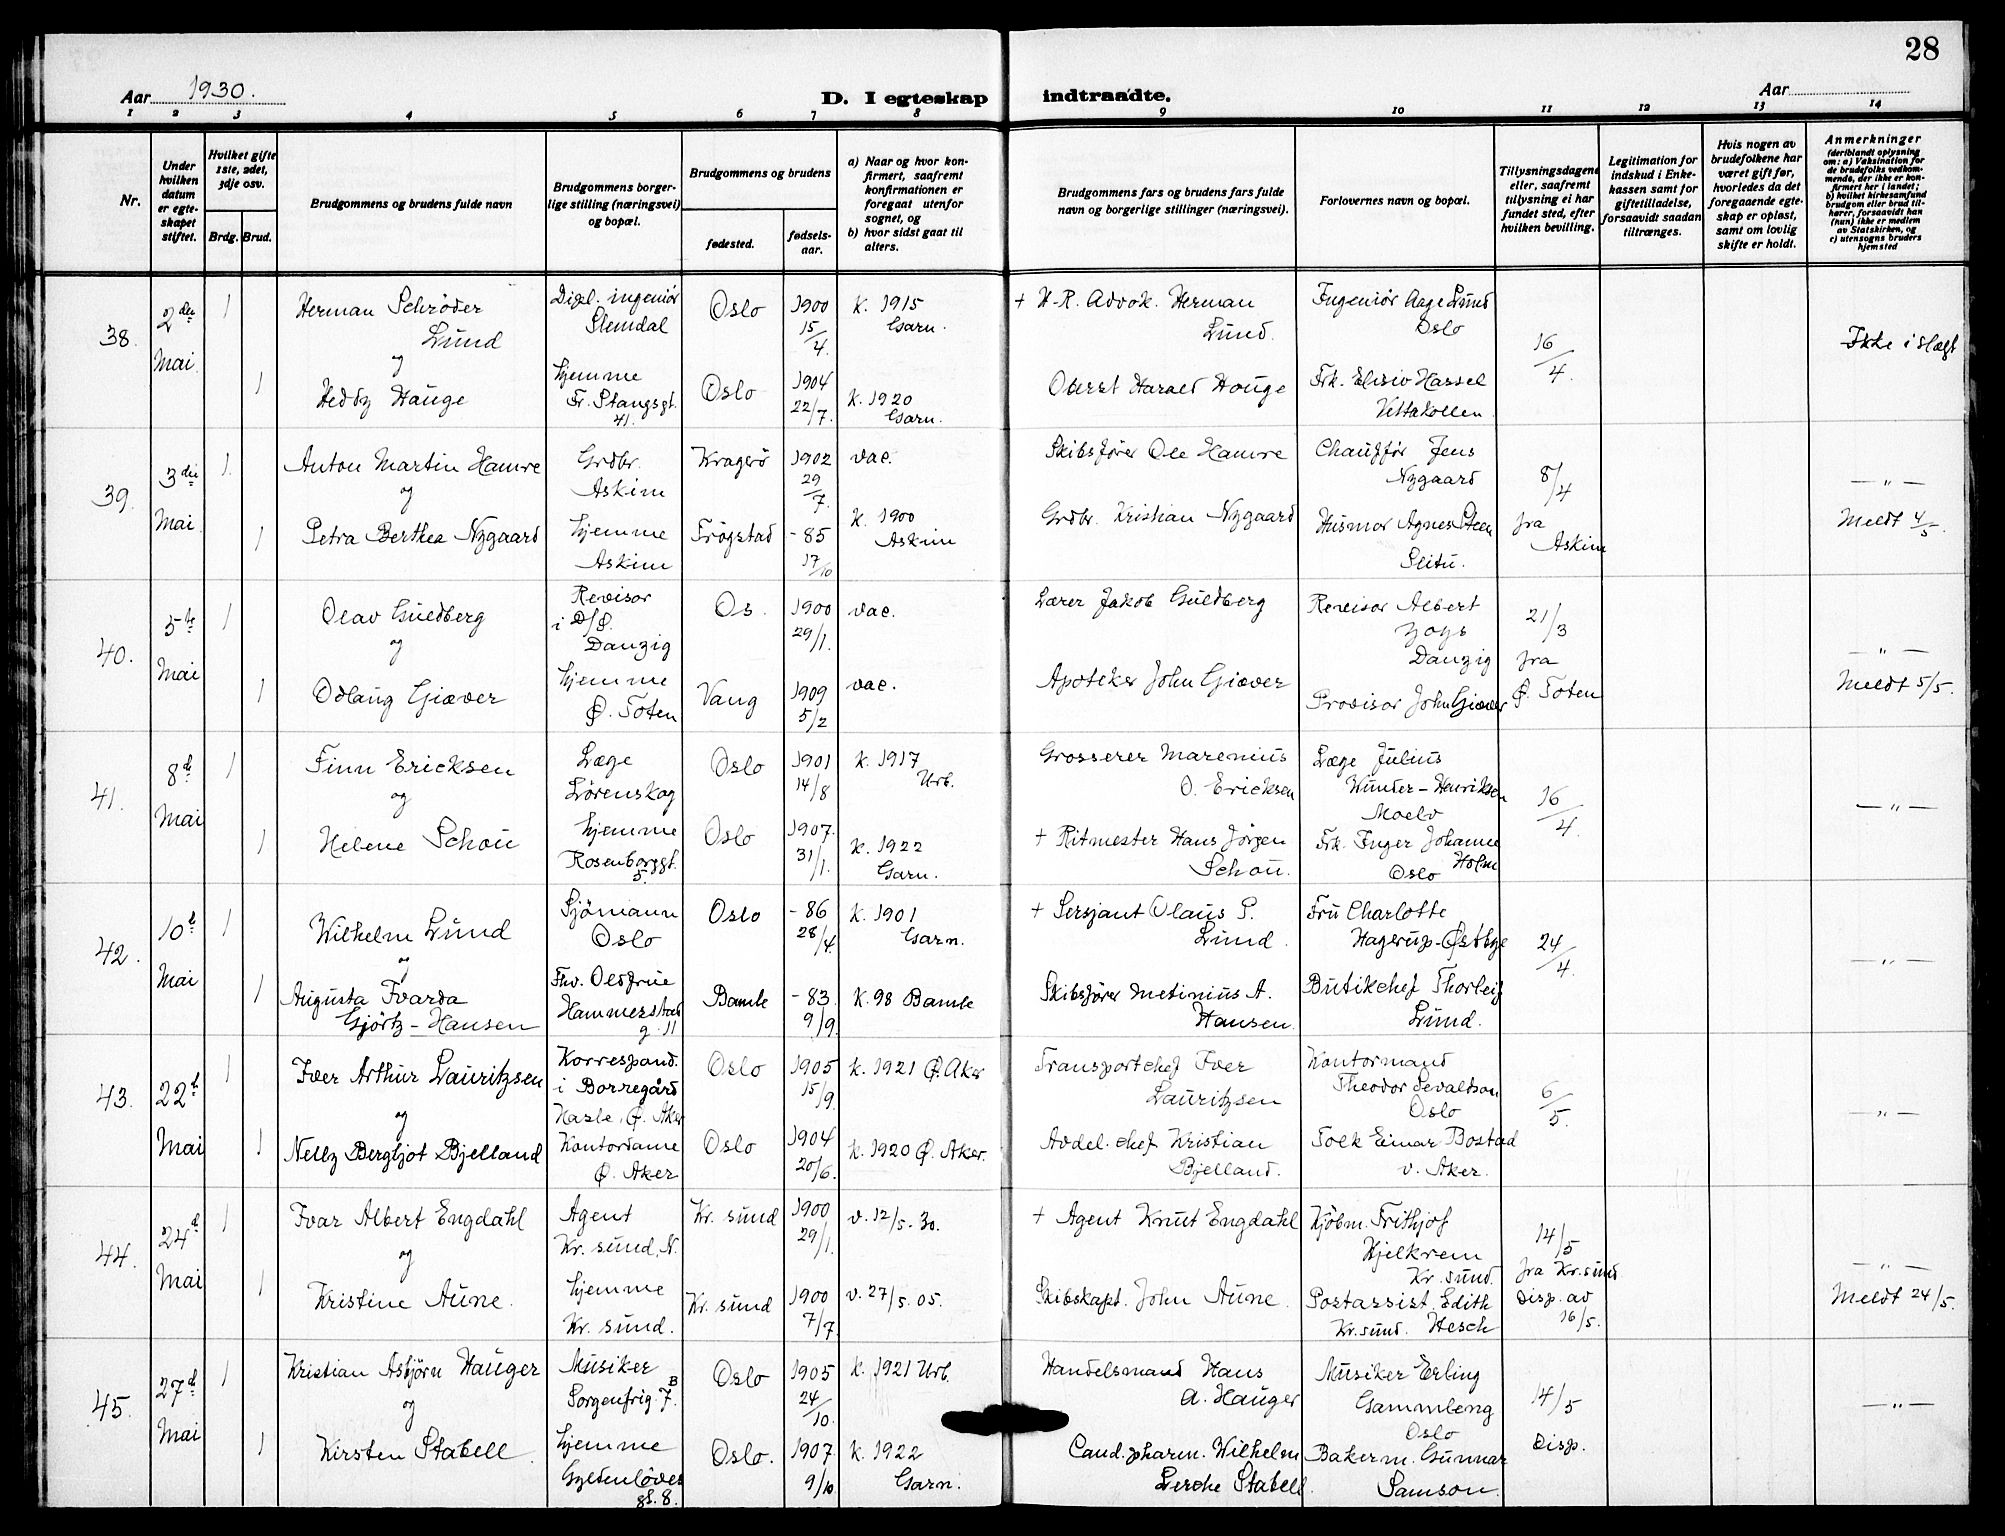 28
Aar 1930.
D. I egteskap indtraadte.
Aar
1 2 3 4 5 6 7 8 9 10 11 12 13 14
Nr.
Under hvilken datum er egteskapet stiftet.
Hvilket gifte 1ste, 2det, 3dje osv.
Brdg. Brud.
Brudgommens og brudens fulde navn
Brudgommens borgerlige stilling (næringsvei) og bopæl.
Brudgommens og brudens
fødested.
fødselsaar.
a) Naar og hvor konfirmert, saafremt konfirmationen er foregaat utenfor sognet, og
b) hvor sidst gaat til alters.
Brudgommens fars og brudens fars fulde navn og borgerlige stillinger (næringsvei).
Forlovernes navn og bopæl.
Tillysningsdagene eller, saafremt tillysning ei har fundet sted, efter hvilken bevilling.
Legitimation for indskud i Enkekassen samt for giftetilladelse, forsaavidt saadan tiltrænges.
Hvis nogen av brudefolkene har været gift før, hvorledes da det foregaaende egteskap er opløst, samt om lovlig skifte er holdt.
Anmerkninger
(deriblandt oplysning om: a) Vaksination for de brudefolks vedkommende, der ikke er konfirmert her i landet;
b) hvilket kirkesamfund brudgom eller brud tilhører, forsaavidt han (hun) ikke er medlem av Statskirken, og
c) utensogns bruders hjemsted
38. 2den Mai 1
Herman Schrøder Lund
og
Dipl. ingeniør Slemdal
Oslo 1900 15/4.
k. 1915 Garn.
+ H-R. Advok. Herman Lund.
Ingeniør Aage Lund Oslo
16/4.
Ikke i slægt
1 Heddy Hauge
hjemme Fr. Stangsgt. 41.
Oslo 1904 22/7.
k. 1920 Garn.
Oberst Harald Hauge
Frk. Elisiv Hassel Vettakollen
39. 3die Mai 1.
Anton Martin Hamre
og
Grdbr. Askim
Kragerø 1902 29/7.
vac.
Skibsfører Ole Hamre
Chauffør Jens Nygaard
8/4
— „ —
1 Petra Berthea Nygaard
hjemme Askim
Frøgstad - 85 17/10
k. 1900 Askim
Grdbr. Kristian Nygaard
Husmor Agnes Steen
fra Askim
Meldt 4/5.
40. 5te Mai 1
Olav Guldberg
og
Revisor i D/S. Danzig
Os. 1900 29/1.
vac.
Lærer Jakob Guldberg
Revisor Albert
Danzig
21/3
— „ —
1 Odlaug Giæver
hjemme Ø. Toten
Vang 1909 5/2
vac.
Apoteker John Giæver
Provisor John Giæver
fra Ø. Toten
Meldt 5/5.
41. 8d Mai 1
Finn Ericksen
og
Læge Lørenskog
Oslo 1901 14/8
k. 1917 Urb.
Grosserer Marenius O. Ericksen
Læge Julius Wunder-Henriksen Moelv
16/4.
— „ —
1 Helene Schou
hjemme Rosenborggt. 5.
Oslo 1907. 31/1.
k. 1922 Garn.
+ Ritmester Hans Jørgen Schou.
Frk. Inger Johanne Holm Oslo
42. 10d Mai 1
Wilhelm Lund
og
Sjømann Oslo
Oslo - 86 28/4.
k. 1901 Garn.
+ Sersjant Olaus S. Lund.
Fru Charlotte Hagerup-Østbye
24/4.
— „ —
1 Augusta Ivarda Gjørtz-Hansen
Fhv. Oldfrue Hammerstad g. 11
Bamle - 83. 9/9.
k. 98 Bamle
Skibsfører Metinius A. Hansen.
Butikchef Thorleif Lund.
43. 22d Mai 1
Iver Arthur Lauritzsen
og
Korrespond. i Borregård Hasle, Ø. Aker
Oslo 1905 15/9.
k. 1921 Ø. Aker
Transportchef Iver Lauritzsen
Kontormand Theodor Sevaldson Oslo
6/5.
— „ —
1 Nelly Bergljot Bjelland
Kontordame Ø. Aker
Oslo 1904 20/6.
k. 1920 Ø. Aker.
Avdel. chef Kristian Bjelland.
Tolk Einar Bostad v. Aker.
44. 24d Mai 1
Ivar Albert Engdahl
og
Agent Kr. sund. N.
Kr. sund 1900 29/1.
v. 12/5. 30.
+ Agent Knut Engdahl
Kjøbm. Frithjof Hjelkrem Kr. sund.
14/5 fra Kr. sund
— „ —
1 Kristine Aune.
hjemme Kr. sund.
Kr. sund 1900 7/7.
v. 27/5. 05.
Skibskapt. John Aune.
Postassist. Edith Hesch Kr. sund.
Disp. av 16/5.
Meldt 24/5.
45. 27d Mai 1
Kristian Asbjørn Hauger
og
Musiker Sorgenfrig. 7B.
Oslo 1905 24/10.
k. 1921 Urb.
Handelsmand Hans A. Hauger
Musiker Erling Gammleng Oslo
14/5
— „ —
1 Kirsten Stabell.
hjemme Gyldenløves gt. 8.
Oslo. 1907 9/10
k. 1922 Garn.
Cand. pharm. Wilhelm Lerche Stabell.
Bakerm. Gunnar Samson.
Disp.